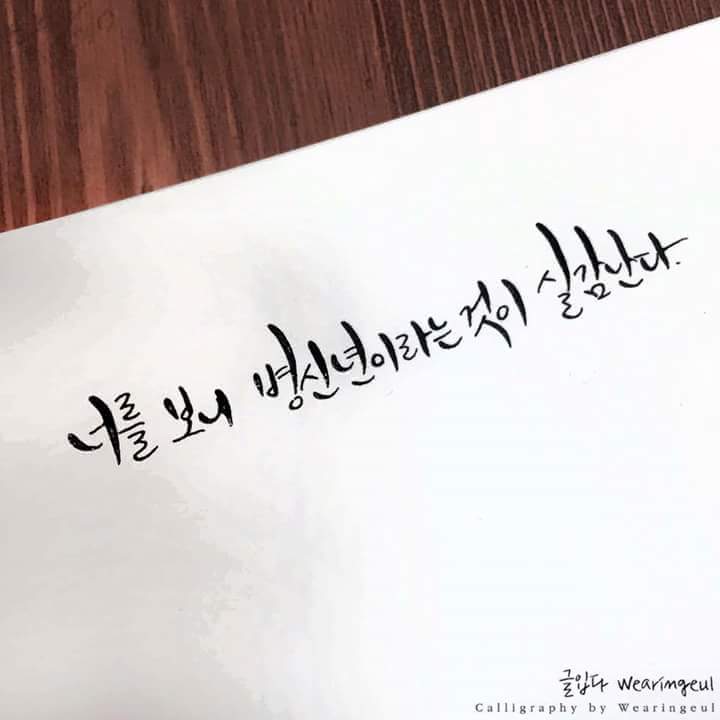 너를 보니 병신년이라는 것이 실감난다.
글입다 wearingeul
Calligraphy by Wearingeul